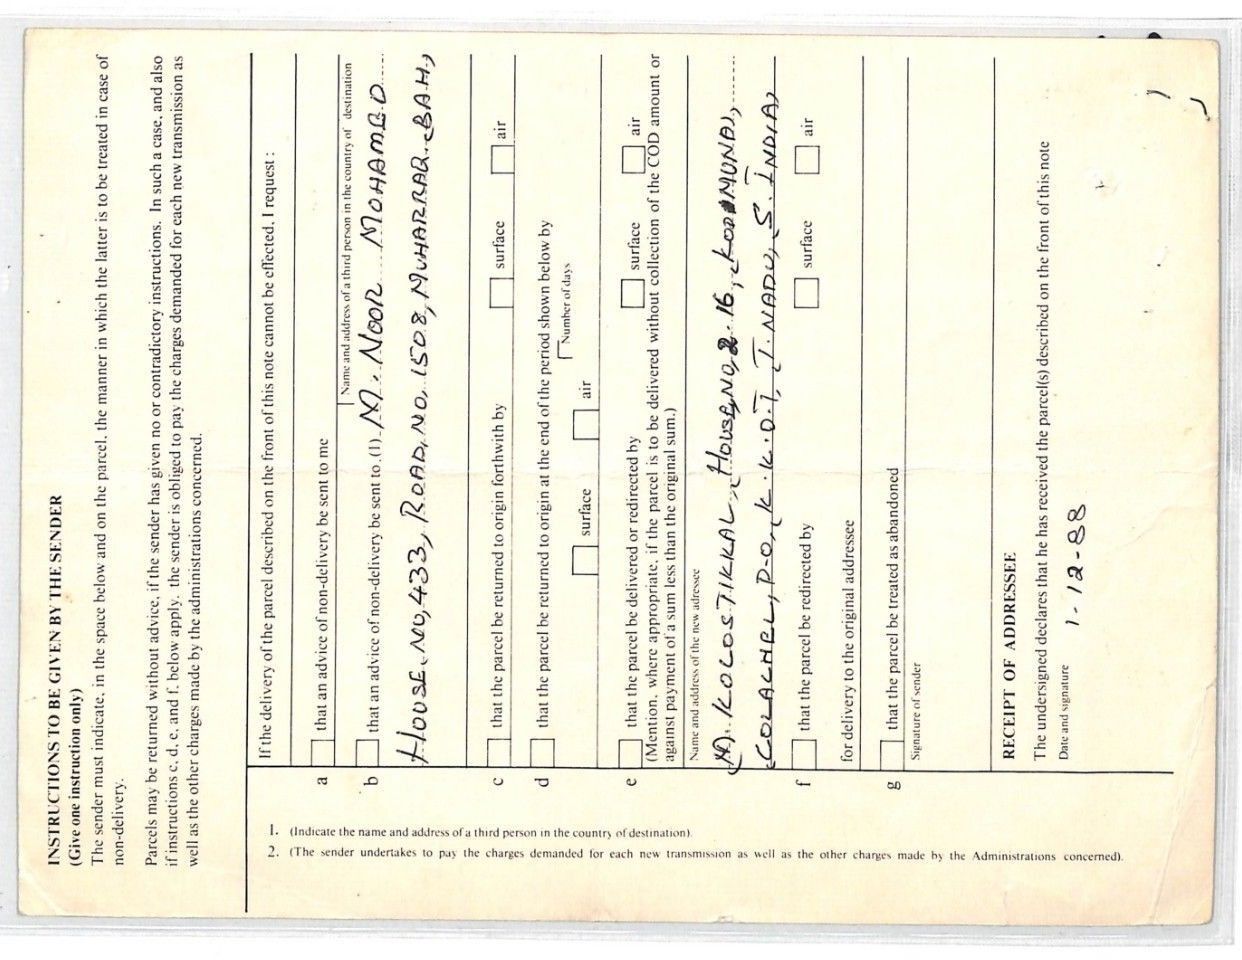 INSTRUCTIONS TO BE GIVEN BY THE SENDER
(Give one instruction only)
The sender must indicate, in the space below and on the parcel, the manner in which the latter is to be treated in case of
non-delivery.
Parcels may be returned without advice, if the sender has given no or contradictory instructions. In such a case, and also
if instructions c, d, e, and f, below apply, the sender is obliged to pay the charges demanded for each new transmission as
well as the other charges made by the administrations concerned.
If the delivery of the parcel described on the front of this note cannot be effected, I request :
a that an advice of non-delivery be sent to me
Name and address of a third person in the country of destination
b that an advice of non-delivery be sent to (1) M. NOOR MOHAMED
HOUSE. NO, 433, ROAD, NO. 1508, MUHARRAQ. BAH,
c that the parcel be returned to origin forthwith by surface air
d that the parcel be returned to origin at the end of the period shown below by
Number of days
surface air
e that the parcel be delivered or redirected by surface air
(Mention, where appropriate, if the parcel is to be delivered without collection of the COD amount or
against payment of a sum less than the original sum.)
Name and address of the new adressee
M. KOLOSTIKKAL, HOUSE, NO, 2-16,
COLACHEL, P-O, K. K. DT, T. NADU, S. INDIA,
f that the parcel be redirected by surface air
for delivery to the original addressee
g that the parcel be treated as abandoned
Signature of sender
RECEIPT OF ADDRESSEE
The undersigned declares that he has received the parcel(s) described on the front of this note
Date and signature 1-12-88
1. (Indicate the name and address of a third person in the country of destination).
2. (The sender undertakes to pay the charges demanded for each new transmission as well as the other charges made by the Administrations concerned).